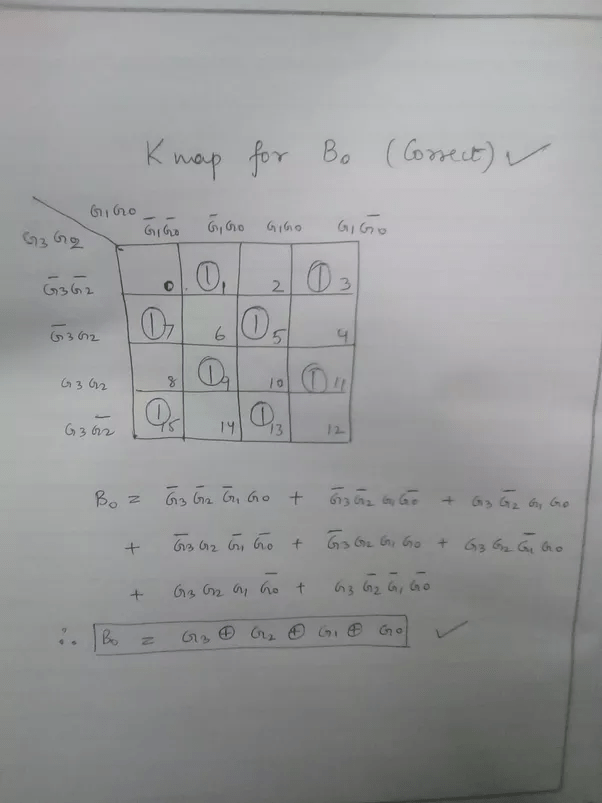 K map for B₀ (Correct) ✓
G₁G₀
G₃G₂
Ḡ₁Ḡ₀ Ḡ₁G₀ G₁G₀ G₁Ḡ₀
Ḡ₃Ḡ₂ 0 ① 1 2 ① 3
Ḡ₃G₂ ① 7 6 ① 5 4
G₃G₂ 8 ① 9 10 ① 11
G₃Ḡ₂ ① 15 14 ① 13 12
B₀ = Ḡ₃Ḡ₂Ḡ₁G₀ + Ḡ₃Ḡ₂G₁Ḡ₀ + G₃Ḡ₂G₁G₀
+ Ḡ₃G₂Ḡ₁Ḡ₀ + Ḡ₃G₂G₁G₀ + G₃G₂Ḡ₁G₀
+ G₃G₂G₁Ḡ₀ + G₃Ḡ₂Ḡ₁Ḡ₀
∴ B₀ = G₃ ⊕ G₂ ⊕ G₁ ⊕ G₀ ✓